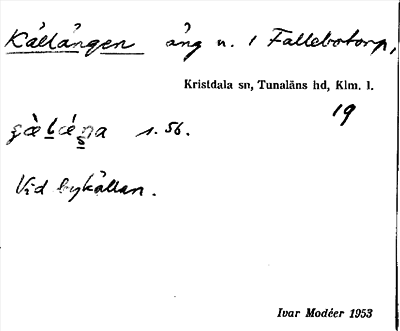 Källängen äng n. i Fallebotorp,
Kristdala sn, Tunaläns hd, Klm. l.
19
s. 56.
Vid bykällan.
Ivar Modéer 1953